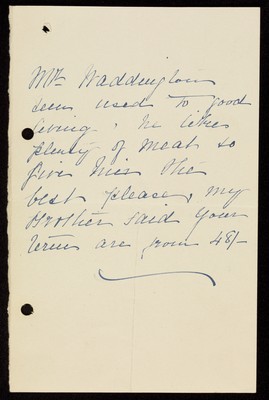 Mr Waddington
seems used to good
living, he likes
plenty of meat so
give him the
best please, my
Brother said your
terms are from 48/-